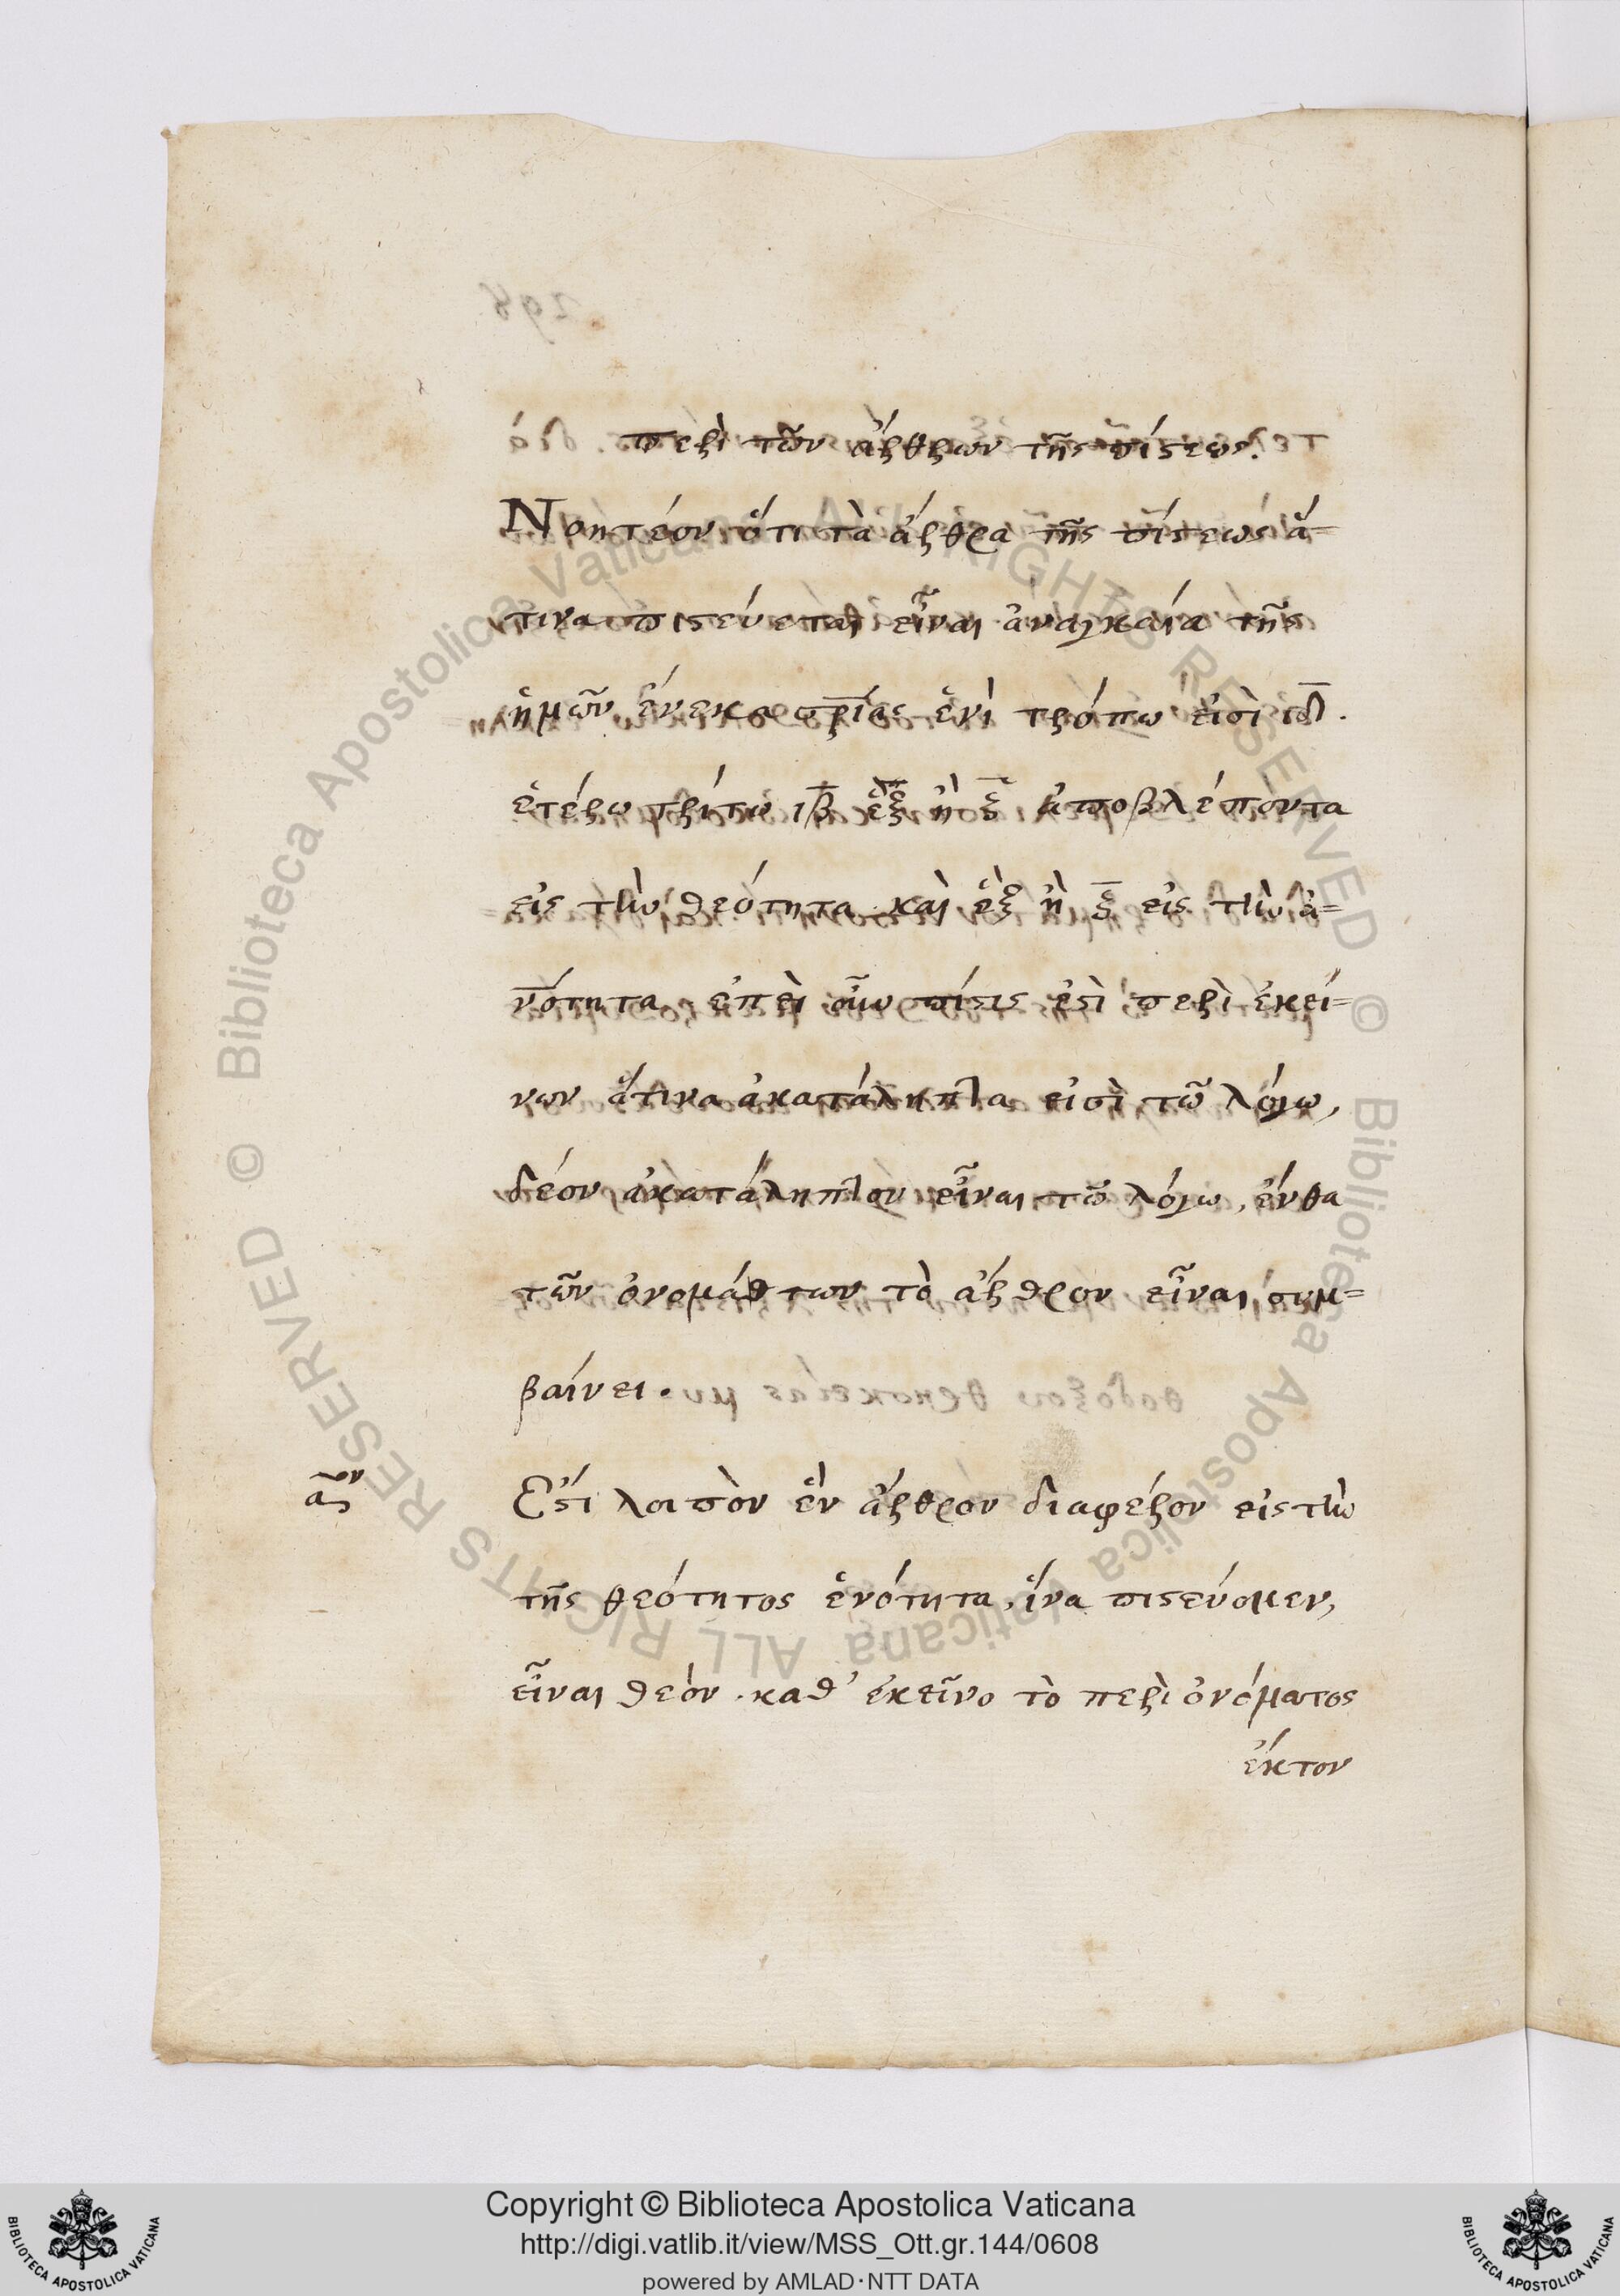 περὶ τῶν ἄρθρων τῆς πίστεως.
Νοητέον ὅτι τὰ ἄρθρα τῆς πίστεως ἅ=
τινα πιστεύεται εἶναι ἀναγκαῖα τῆς
ἡμῶν ἕνεκα σ̅ρίας ἑνὶ τρόπω εἰσὶ ιδ̅.
ἑτέρω τρόπω ιβ̅ ἓξ ἢ ξ̅ ἀποβλέποντα
εἰς τὴν θεότητα καὶ ἓξ ἢ ξ̅ εἰς τὴν ἀ=
ν̅ότητα, ἐπεὶ οὖν πίστις ἐστὶ περὶ ἐκεί=
νων ἅτινα ἀκατάληπτα εἰσὶ τῶ λόγω,
δέον ἀκατάληπτον εἶναι τῶ λόγω, ἔνθα
τῶν ὀνομάτων τὸ ἄρθρον εἶναι συμ=
βαίνει.
αον
Ἔστι λοιπὸν ἓν ἄρθρον διαφέρον εἰς τὴν
τῆς θεότητος ἑνότητα, ἵνα πιστεύομεν,
εἶναι θεόν. καθ' ἐκεῖνο τὸ περὶ ὀνόματος
ἕκτον
Copyright © Biblioteca Apostolica Vaticana
http://digi.vatlib.it/view/MSS_Ott.gr.144/0608
powered by AMLAD·NTT DATA
© Biblioteca Apostolica Vaticana ALL RIGHTS RESERVED
© Biblioteca Apostolica Vaticana ALL RIGHTS RESERVED
BIBLIOTECA APOSTOLICA VATICANA
BIBLIOTECA APOSTOLICA VATICANA